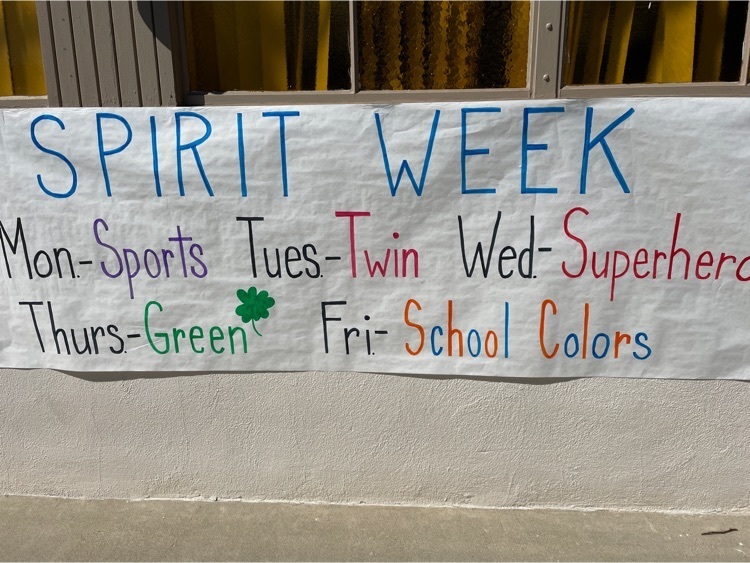 SPIRIT WEEK
Mon.-Sports Tues.-Twin Wed.-Superhero
Thurs.-Green Fri.- School Colors